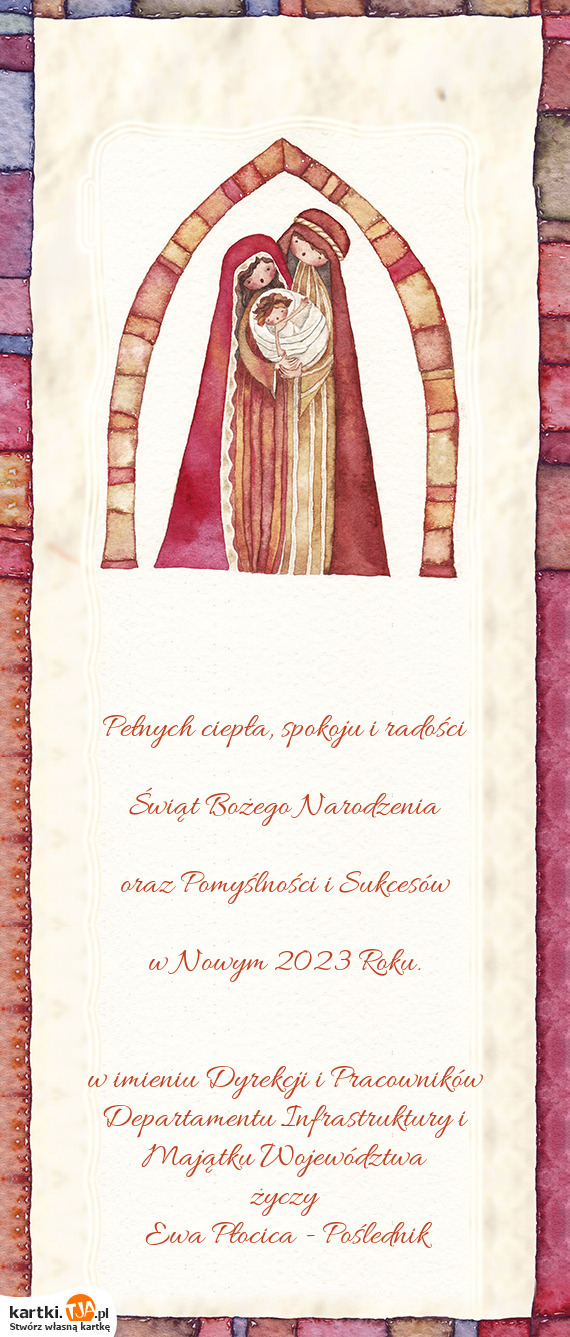 Pełnych ciepła, spokoju i radości
Świąt Bożego Narodzenia
oraz Pomyślności i Sukcesów
w Nowym 2023 Roku.
w imieniu Dyrekcji i Pracowników
Departamentu Infrastruktury i
Majątku Województwa
życzy
Ewa Płocica - Poślednik
kartki.TJA.pl
Stwórz własną kartkę